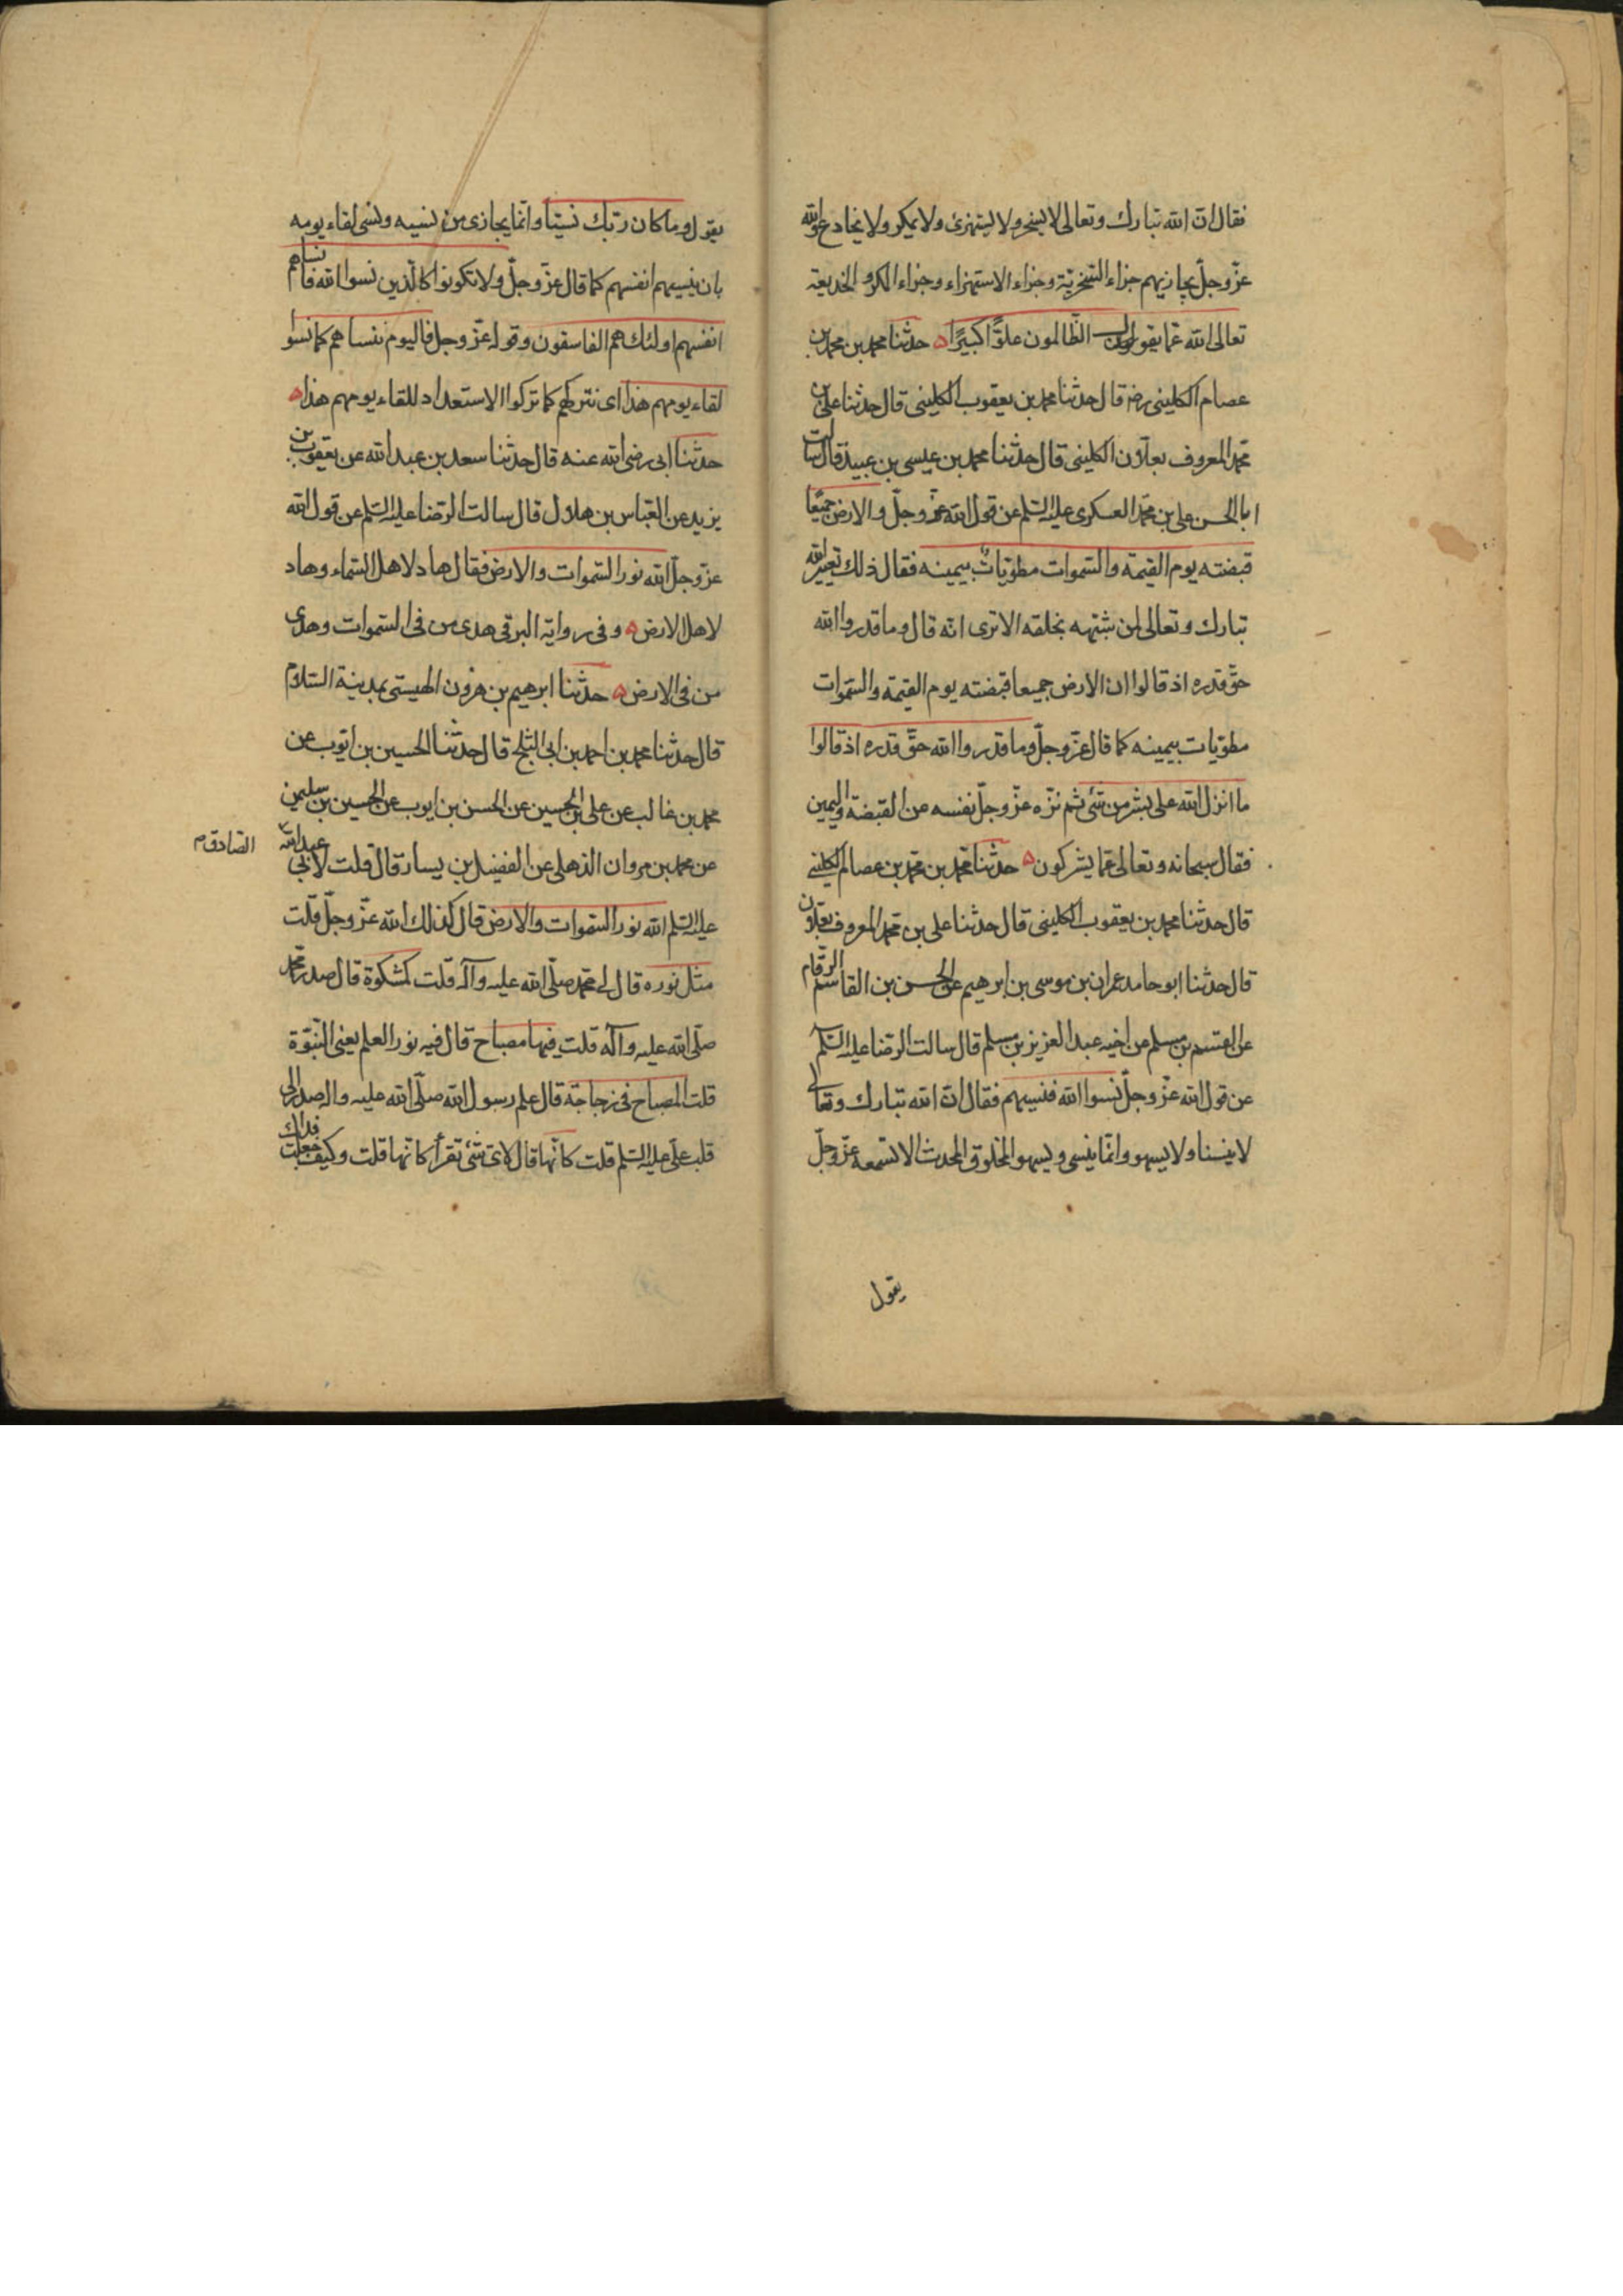 فقال ان الله تبارك وتعالى لا يسخر ولا يستهزئ ولا يمكر ولا يخادع ولكنه
عزّ وجلّ يجازيهم جزاء السّخريّة وجزاء الاستهزاء وجزاء المكر والخديعة
تعالى الله عمّا يقول الظّالمون علوًّا كبيرًا ه حدثنا محمد بن محمد بن
عصام الكلينى رضه قال حدثنا محمد بن يعقوب الكلينى قال حدثنا على بن
محمد المعروف بعلّان الكلينى قال حدثنا محمد بن عيسى بن عبيد قال سالت
ابا الحسن على بن محمد العسكرى عليه السّلم عن قول الله عزّ وجلّ والارض جميعًا
قبضته يوم القيمة والسّموات مطويّاتٌ بيمينه فقال ذلك تعيير الله
تبارك وتعالى لمن شبّهه بخلقه الا ترى انّه قال وما قدروا الله
حقّ قدره اذ قالوا ان الارض جميعا قبضته يوم القيمة والسّموات
مطويّات بيمينه كما قال عزّ وجلّ وما قدروا الله حقّ قدره اذ قالوا
ما انزل الله على بشر من شئ ثم نزّه عزّ وجلّ نفسه عن القبضة واليمين
فقال سبحانه وتعالى عمّا يشركون ه حدثنا محمد بن محمد بن عصام الكلينى
قال حدثنا محمد بن يعقوب الكلينى قال حدثنا على بن محمد المعروف بعلّان
قال حدثنا ابو حامد عمران بن موسى بن ابرهيم عن الحسن بن القاسم الرقّام
عن القسم بن مسلم عن اخيه عبد العزيز بن مسلم قال سالت الرّضا عليه السّلم
عن قول الله عزّ وجلّ نسوا الله فنسيهم فقال انّ الله تبارك وتعالى
لا ينسا ولا يسهو وانّما ينسى ويسهو المخلوق المحدث الا تسمعه عزّ وجلّ
يقول
يقول وما كان ربّك نسيّا وانّما يجازى من نسيه ونسى لقاء يومه
بان ينسيهم انفسهم كما قال عزّ وجلّ ولا تكونوا كالّذين نسوا الله فانساهم
انفسهم اولئك هم الفاسقون وقوله عزّ وجل فاليوم ننساهم كما نسوا
لقاء يومهم هذا اى نتركهم كما تركوا الاستعداد للقاء يومهم هذا ه
حدّثنا ابى رضى الله عنه قال حدّثنا سعد بن عبد الله عن يعقوب بن
يزيد عن العبّاس بن هلال قال سالت الرّضا عليه السّلم عن قول الله
عزّ وجلّ الله نور السّموات والارض فقال هاد لاهل السّماء وهاد
لاهل الارض ه وفى رواية البرقى هدى من فى السّموات وهدى
من فى الارض ه حدّثنا ابرهيم بن هرون الهيستى بمدينة السّلام
قال حدثنا محمد بن احمد بن ابى الثلج قال حدّثنا الحسين بن ايّوب عن
محمد بن غالب عن على بن الحسين عن الحسن بن ايوب عن الحسين بن سليمن
عن محمد بن مروان الذهلى عن الفضيل بن يسار قال قلت لابى عبد الله
الصّادق م
عليه السّلم الله نور السّموات والارض قال كذلك الله عزّ وجلّ قلت
مثل نوره قال لى محمّد صلّى الله عليه وآله قلت كمشكوة قال صدر محمد
صلّى الله عليه وآله قلت فيها مصباح قال فيه نور العلم يعنى النّبوّة
قلت المصباح فى زجاجة قال علم رسول الله صلّى الله عليه واله صدر الى
قلب علىّ عليه السّلم قلت كانّها قال لاىّ شئ تقرأ كانّها قلت وكيف جعلت فداك